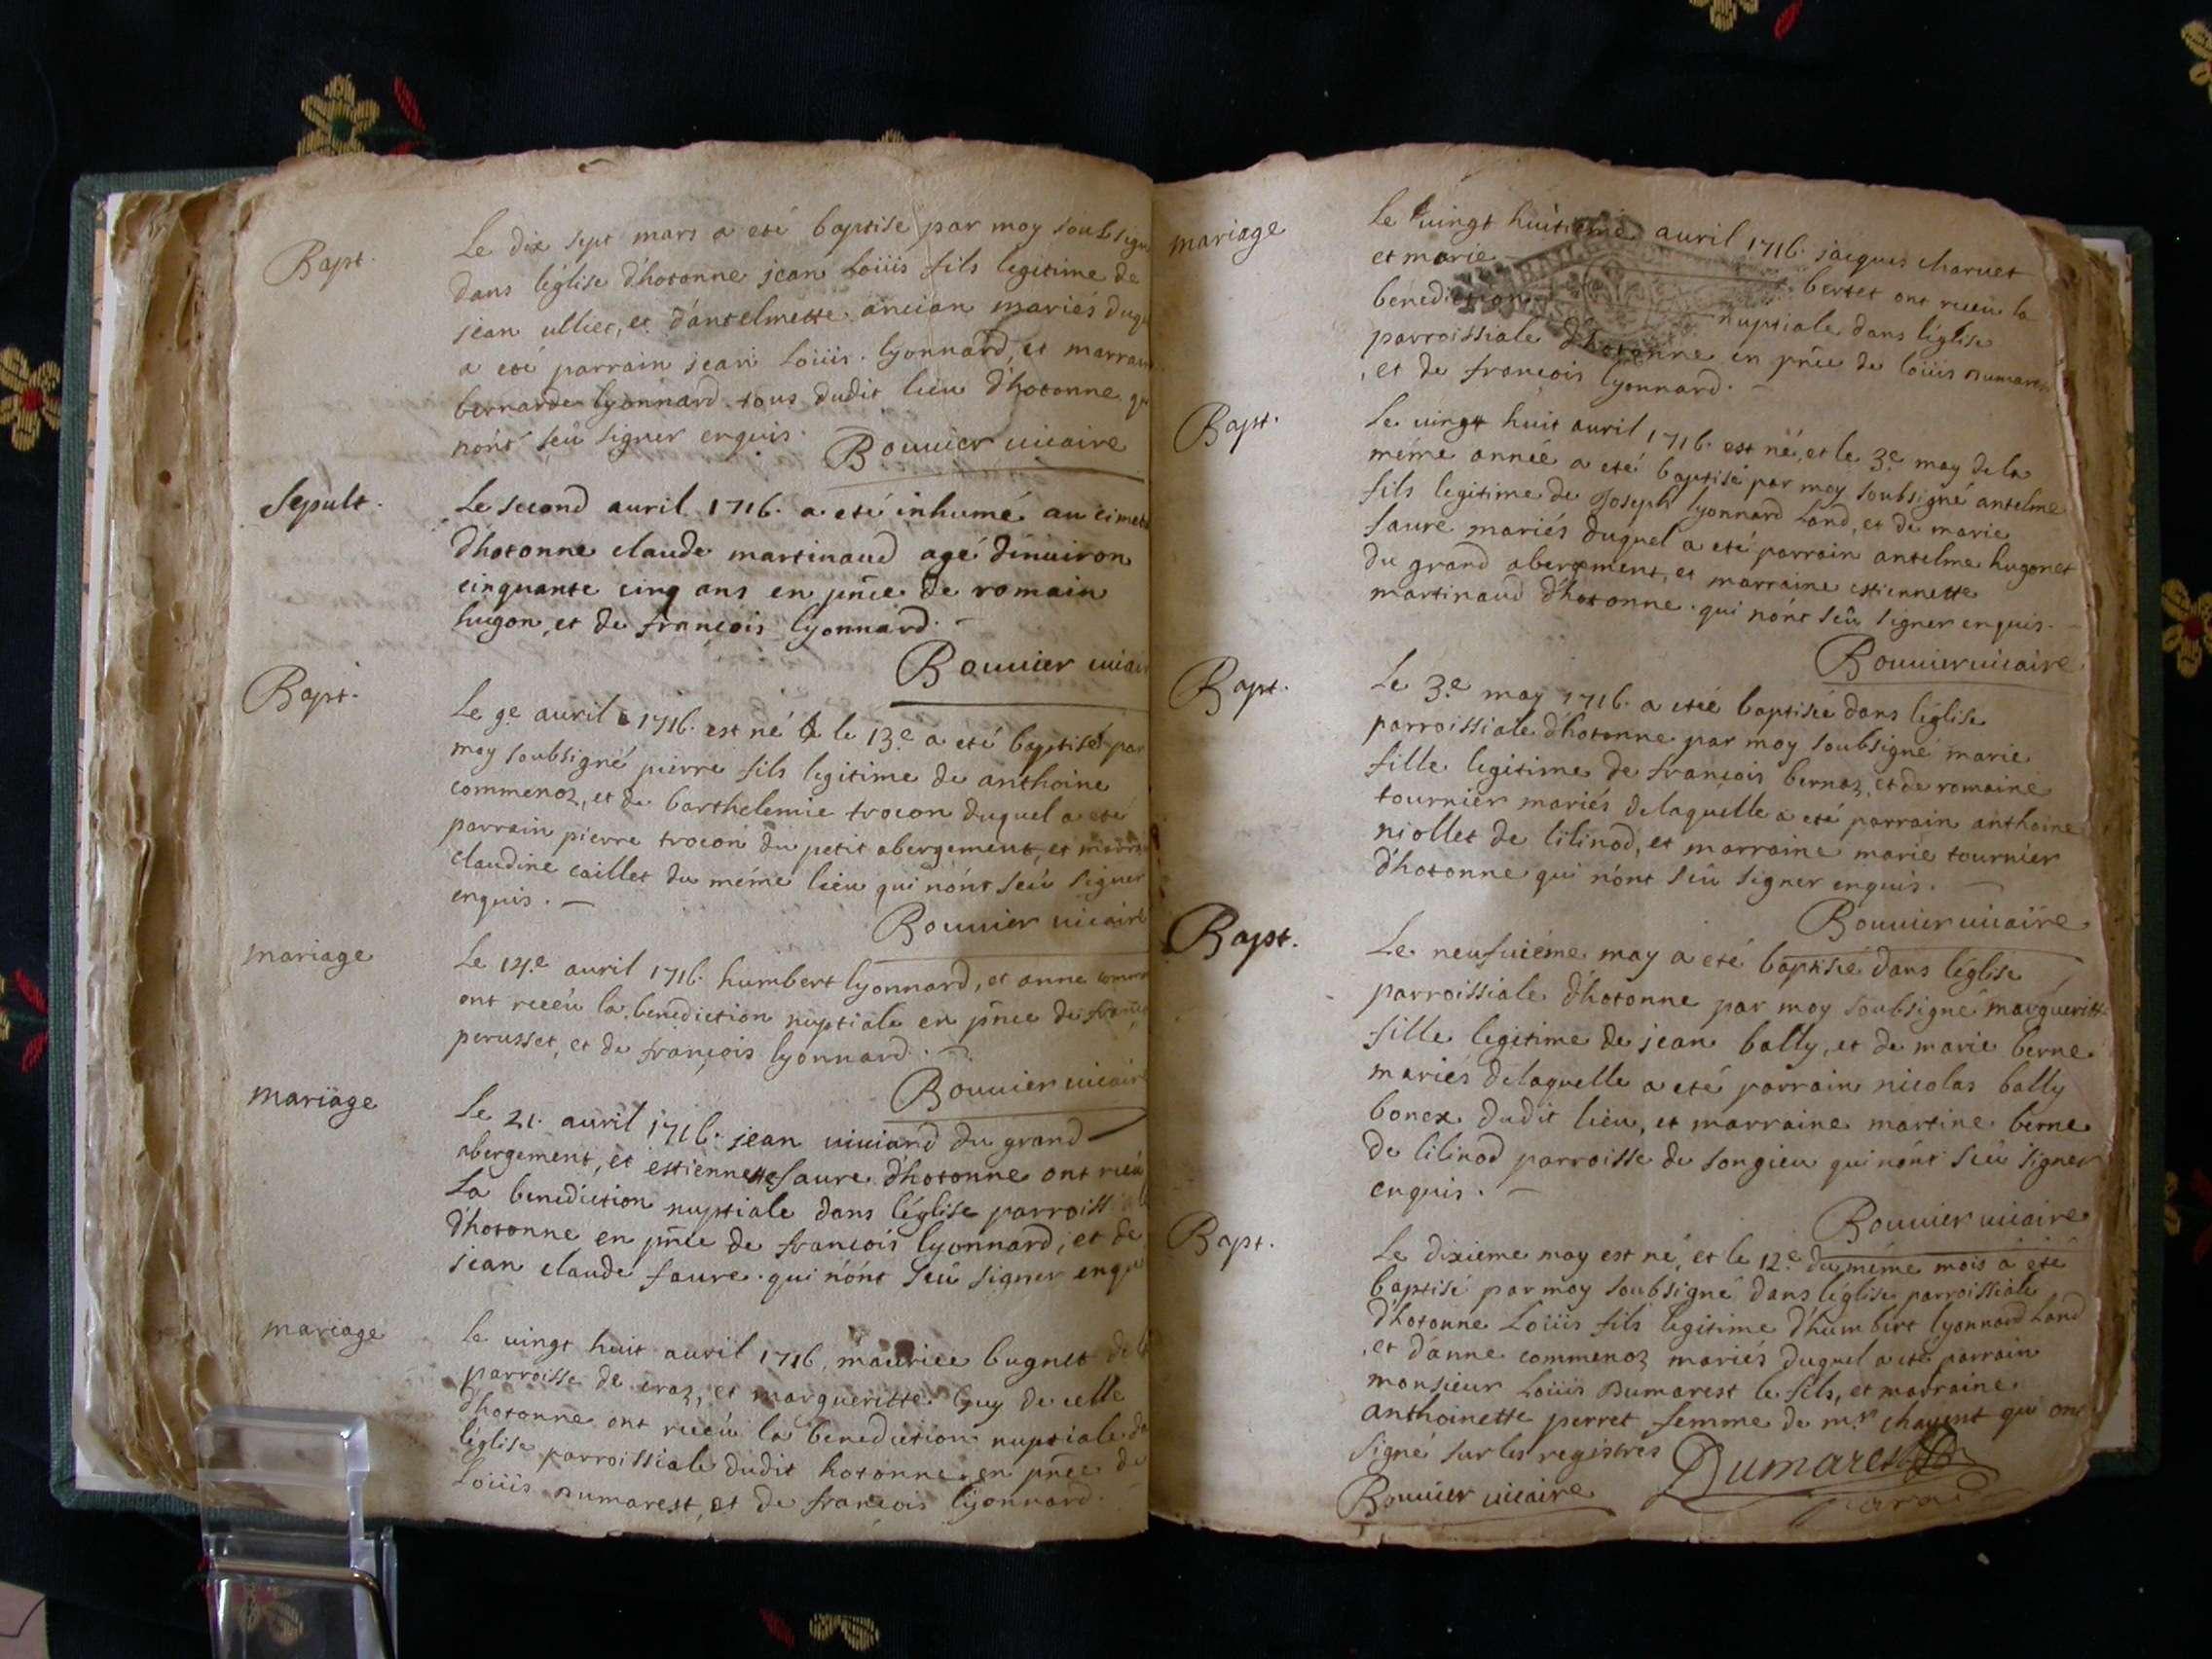 Bapt.
Le dix sept mars a eté baptise par moy soubsigne
dans l'église d'hotonne jean Loüis fils legitime de
jean ulliet, et d'antelmette ancian mariés duqu
a eté parrain jean Loüis lyonnard, et marrain
bernarde lyonnard tous dudit lieu d'hotonne qu
n'ont seü signer enquis.
Bouuier uicaire
Sepult.
Le second auril 1716. a eté inhumé au cimet
d'hotonne claude martinaud agé d'enuiron
cinquante cinq ans en pñce de romain
hugon, et de françois lyonnard.
Bouuier uicair
Bapt.
Le 9e auril 1716. est né & le 13.e a eté baptisé par
moy soubsigné pierre fils legitime de anthoine
commenoz, et de barthelemie trocon duquel a eté
parrain pierre trocon du petit abergement, et marrai
claudine caillet du méme lieu qui n'ont seü signer
enquis.
Bouuier uicaire
mariage
Le 14.e auril 1716. humbert lyonnard, et anne comme
ont receü la benediction nuptiale en pñce de franç
perusset, et de françois lyonnard.
Bouuier uicair
mariage
Le 21. auril 1716. jean uiuiand du grand
abergement, et estiennette faure d'hotonne ont riceü
La benediction nuptiale dans l'église parroissiale
d'hotonne en pñce de françois lyonnard, et de
jean claude faure. qui n'ont seü signer enqu
mariage
Le uingt huit auril 1716. maurice bugnet de la
parroisse de craz, et margueritte guy de celle
d'hotonne ont riceü la benediction nuptiale da
l'église parroissiale dudit hotonne en pñce de
Loüis Dumarest, et de françois lyonnard.
mariage
Le uingt huitieme auril 1716. jacques charuet
et marie bertet ont riceü la
benediction nuptiale dans l'église
parroissiale d'hotonne en pñce de loüis Dumarest
, et de françois lyonnard.
Bapt.
Le uingt huit auril 1716. est né, et le 3.e may de la
méme année a eté baptisé par moy soubsigné antelme
fils legitime de Joseph lyonnard Land, et de marie
faure mariés duquel a eté parrain antelme hugonet
du grand abergement, et marraine estiennette
martinaud d'hotonne. qui n'ont seü signer enquis.
Bouuier uicaire
Bapt.
Le 3.e may 1716. a eté baptisée dans l'église
parroissiale d'hotonne par moy soubsigné marie
fille legitime de françois bernoz, et de romaine
tournier mariés de laquelle a eté parrain anthoine
niollet de lilinod, et marraine marie tournier
d'hotonne qui n'ont seü signer enquis.
Bouuier uicaire
Bapt.
Le neufuiéme may a eté baptisée dans l'église
parroissiale d'hotonne par moy soubsigné margueritte
fille legitime de jean bally, et de marie berne
mariés de laquelle a eté parrain nicolas bally
bonex dudit lieu, et marraine martine berne
de lilinod parroisse de songieu qui n'ont seü signer
enquis.
Bouuier uicaire
Bapt.
Le dixieme may est né, et le 12.e du méme mois a eté
baptisé par moy soubsigné dans l'église parroissiale
d'hotonne Loüis fils legitime d'humbert lyonnard Land
, et d'anne commenoz mariés duquel a eté parrain
monsieur Loüis Dumarest le fils, et marraine
anthoinette perret femme de mr. chayent qui ont
signé sur les registres
Dumarest
Bouuier uicaire